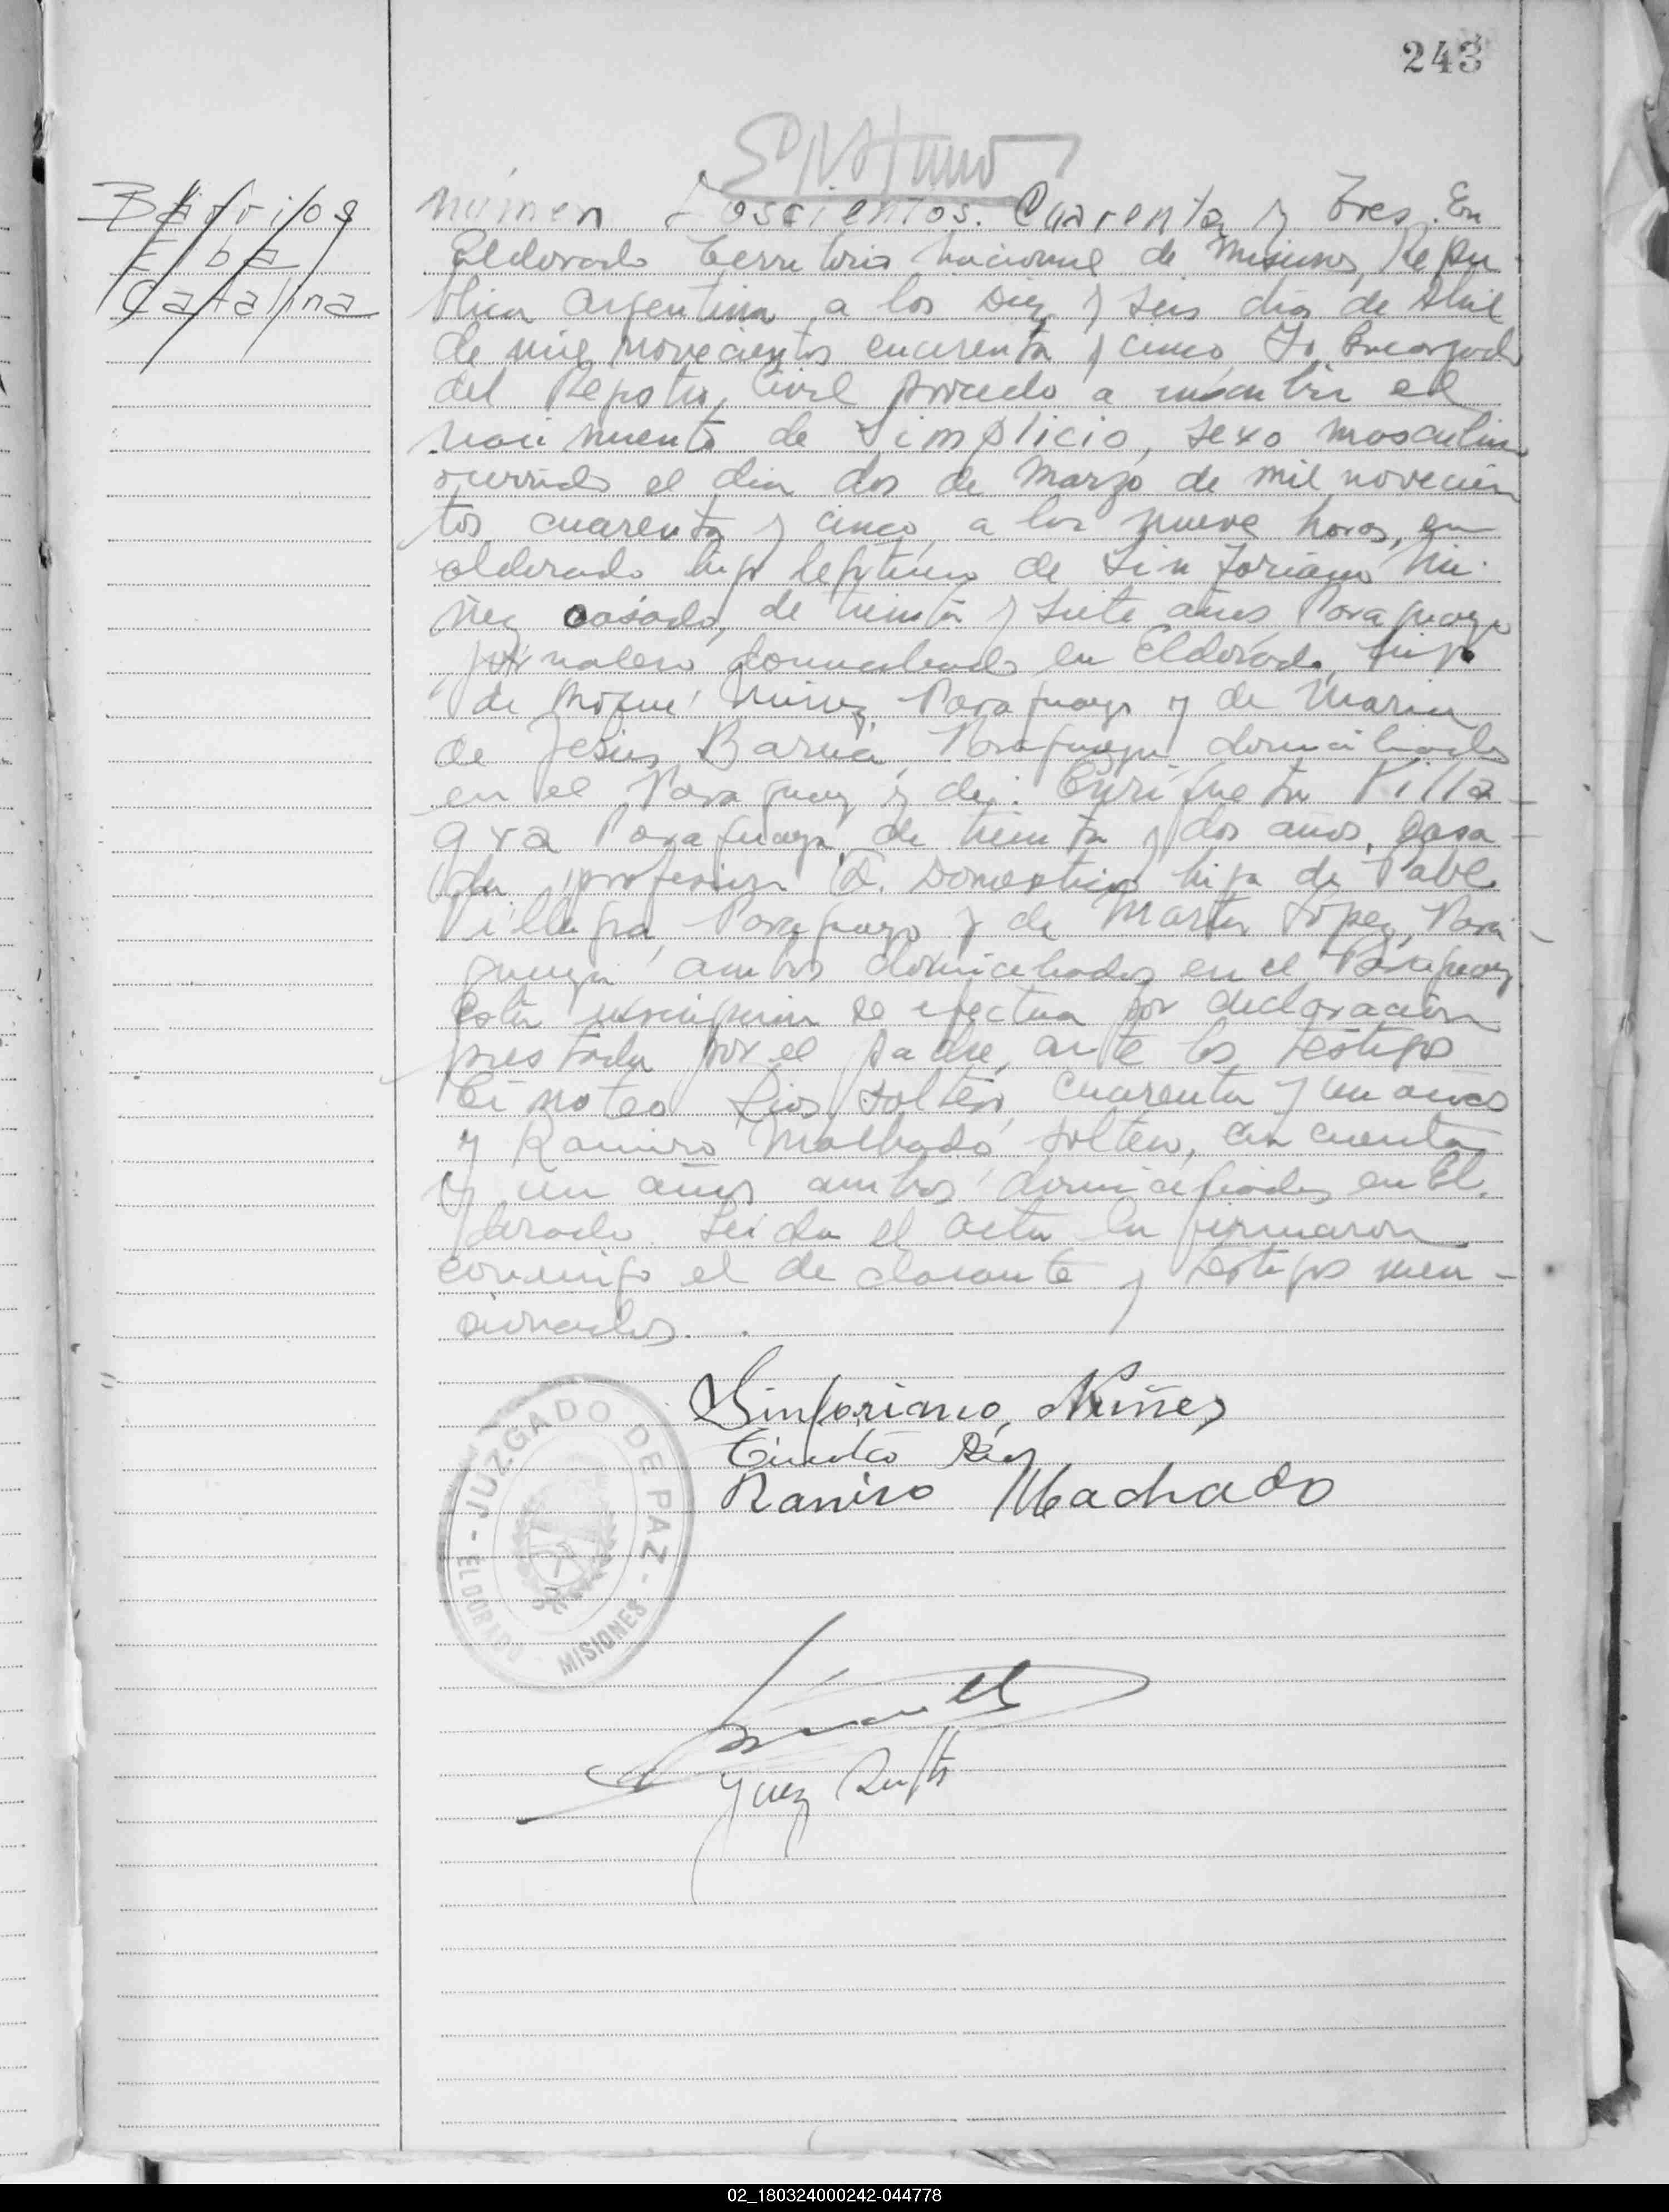 243
Barrios
Elba
Catalina
número Doscientos. Cuarenta y Tres. En
Eldorado Territorio Nacional de Misiones, Repu-
blica Argentina, a los Diez y seis dias de Abril
de mil novecientos cuarenta y cinco, Yo, Encargado
del Registro Civil procedo a inscribir el
nacimiento de Simplicio, sexo masculino
ocurrido el dia dos de Marzo de mil novecien
tos cuarenta y cinco, a las nueve horas, en
eldorado hijo legitimo de Sinforiano Nú-
ñez casado, de treinta y siete años Paraguayo
jornalero domiciliado en Eldorado, hijo
de Nuñez, Paraguayo y de Maria
de Jesus Paraguaya domiciliados
en el Paraguay y de: Enriqueta Villa-
gra Paraguaya, de treinta y dos años, casa-
da profesion Q. Domesticos hija de Pablo
Villagra, Paraguayo y de Marta López, Para-
guaya, ambos domiciliados en el Paraguay
Esta inscripcion se efectua por declaracion
prestada por el padre, ante los testigos
Timoteo Rios, soltero, cuarenta y un años
y Ramiro Machado, soltero, cincuenta
y un años ambos domiciliados en El-
dorado. Leida el acta la firmaron
conmigo el declarante y testigos men-
cionados.
Sinforiano Nuñez
Timoteo Rios
Ramiro Machado
JUZGADO DE PAZ - ELDORADO - MISIONES
Juez Supte
02_180324000242-044778